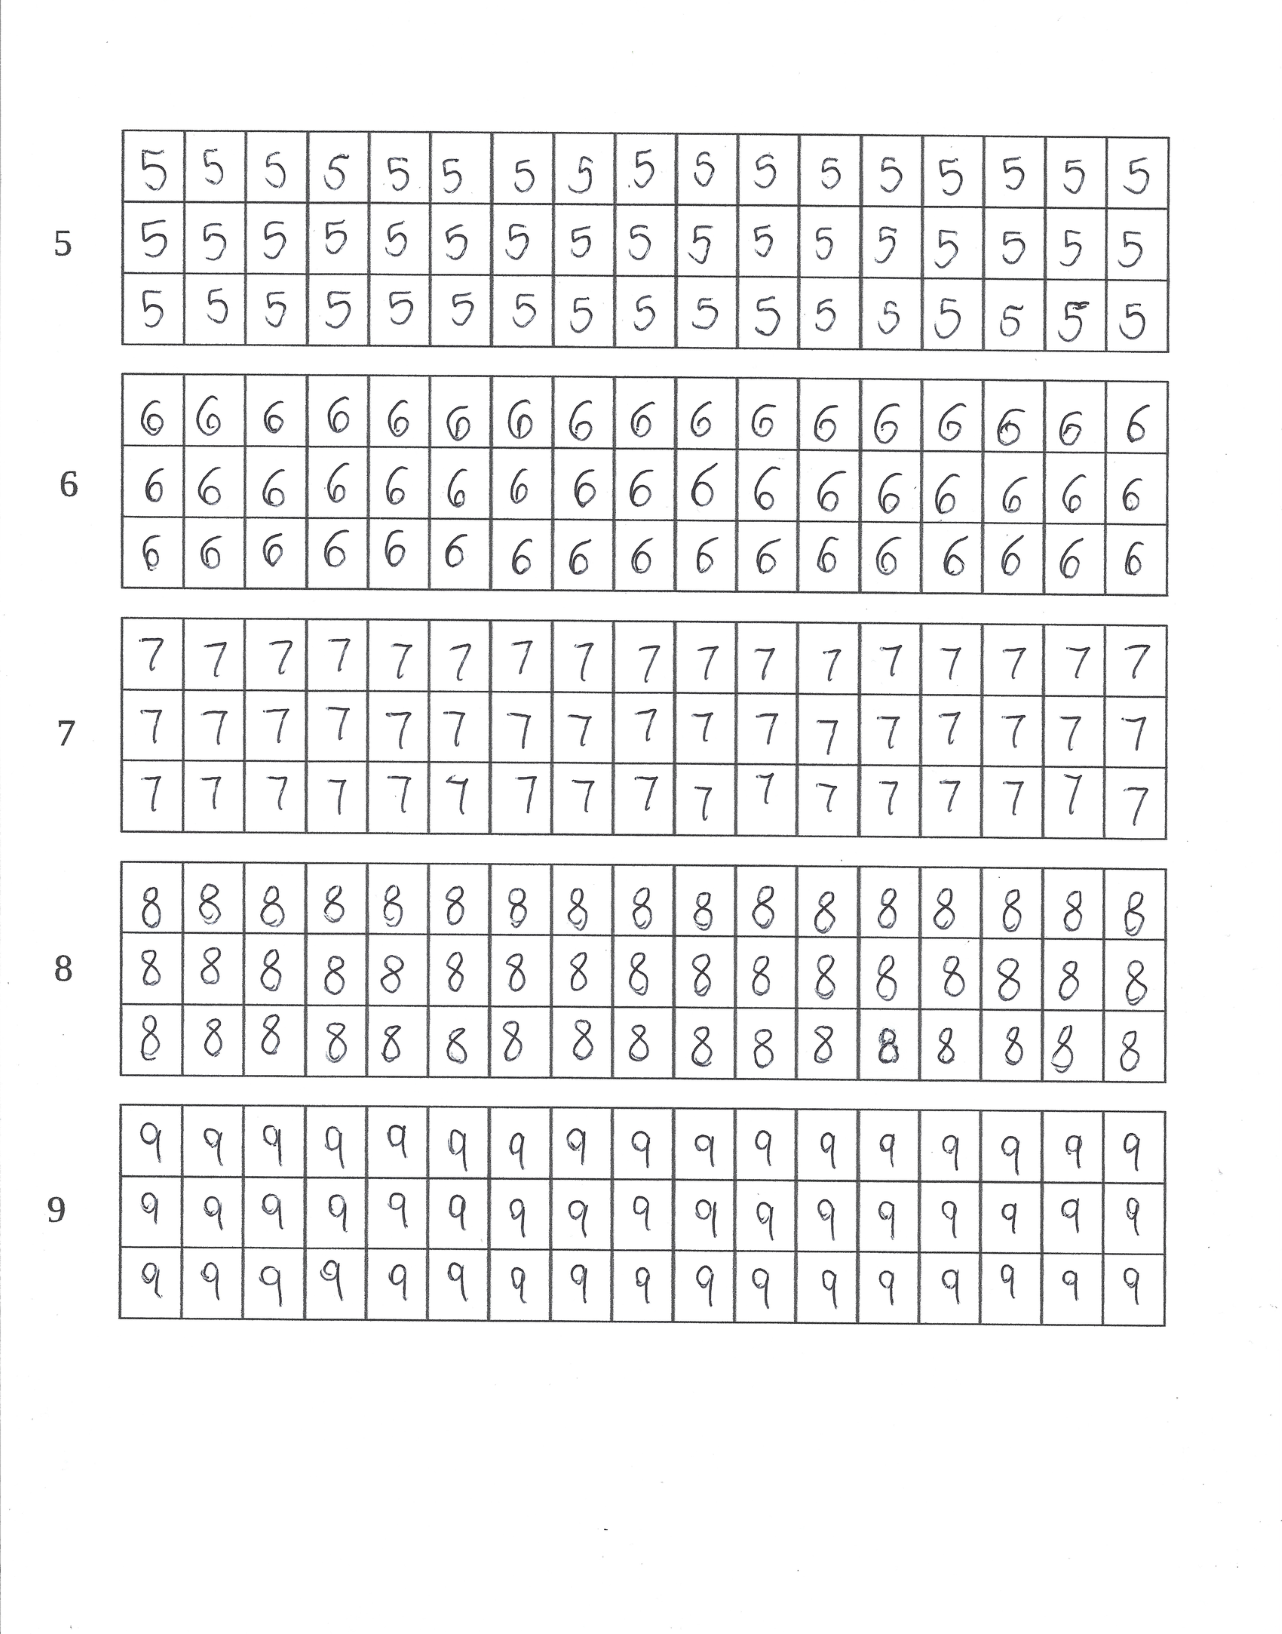 5 5 5 5 5 5 5 5 5 5 5 5 5 5 5 5 5
5
5 5 5 5 5 5 5 5 5 5 5 5 5 5 5 5 5
5 5 5 5 5 5 5 5 5 5 5 5 5 5 5 5 5
6 6 6 6 6 6 6 6 6 6 6 6 6 6 6 6 6
6
6 6 6 6 6 6 6 6 6 6 6 6 6 6 6 6 6
6 6 6 6 6 6 6 6 6 6 6 6 6 6 6 6 6
7 7 7 7 7 7 7 7 7 7 7 7 7 7 7 7 7
7
7 7 7 7 7 7 7 7 7 7 7 7 7 7 7 7 7
7 7 7 7 7 7 7 7 7 7 7 7 7 7 7 7 7
8 8 8 8 8 8 8 8 8 8 8 8 8 8 8 8 8
8
8 8 8 8 8 8 8 8 8 8 8 8 8 8 8 8 8
8 8 8 8 8 8 8 8 8 8 8 8 8 8 8 8 8
9 9 9 9 9 9 9 9 9 9 9 9 9 9 9 9 9
9
9 9 9 9 9 9 9 9 9 9 9 9 9 9 9 9 9
9 9 9 9 9 9 9 9 9 9 9 9 9 9 9 9 9